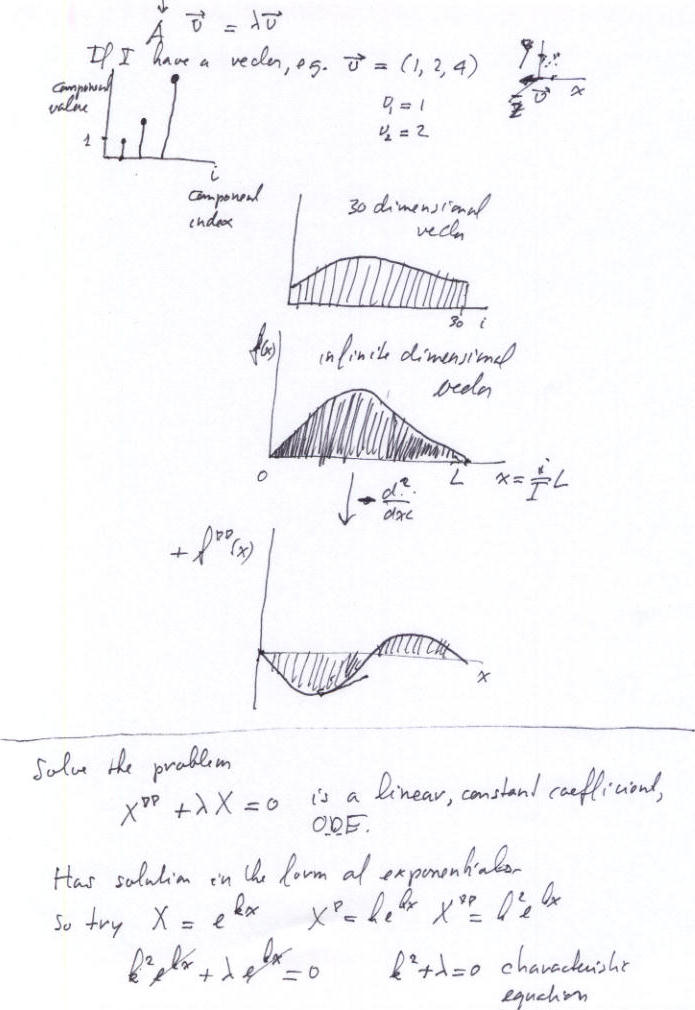 A v⃗ = λv⃗
If I have a vector, e.g. v⃗ = (1, 2, 4)
component value
1
i
component index
v₁ = 1
v₂ = 2
x
v⃗
30 dimensional vector
30 i
f(x)
infinite dimensional vector
0 L x = i/I L
d²/dx²
+ f''(x)
x
Solve the problem
X'' + λX = 0 is a linear, constant coefficient,
O.D.E.
Has solution in the form of exponentials
So try X = e^{kx} X' = ke^{kx} X'' = k²e^{kx}
k²e^{kx} + λe^{kx} = 0 k² + λ = 0 characteristic
equation